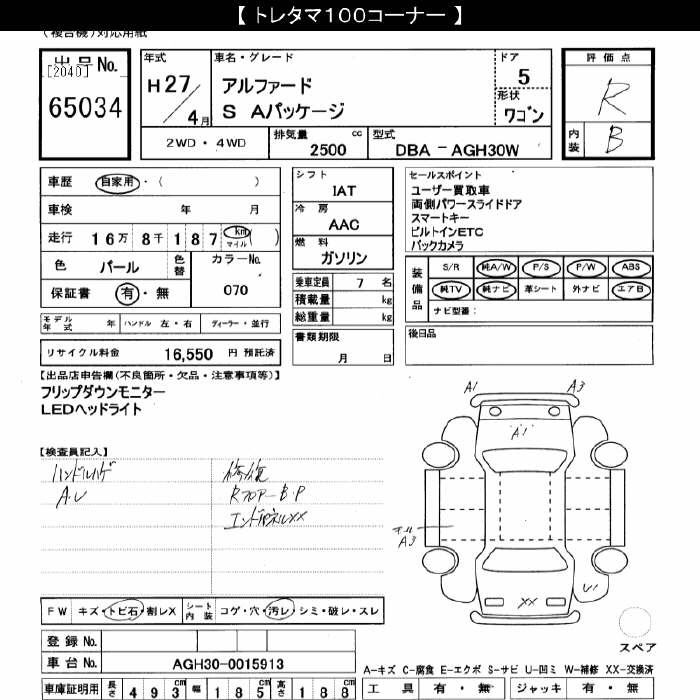 【 トレタマ100コーナー 】
(複合機)対応用紙
出品No.
[2040]
65034
年式
H27/4月
車名・グレード
アルファード
S Aパッケージ
ドア
5
形状
ワゴン
評価点
R
内装
B
2WD・4WD
排気量 cc
2500
型式
DBA - AGH30W
車歴 自家用・( )
車検 年 月
走行 16万 8千 187 km マイル ( )
色 パール 色替
カラーNo.
070
保証書 有・無
シフト
IAT
冷房
AAC
燃料
ガソリン
乗車定員 7 名
積載量 kg
総重量 kg
セールスポイント
ユーザー買取車
両側パワースライドドア
スマートキー
ビルトインETC
バックカメラ
装備品
S/R 純A/W P/S P/W ABS
純TV 純ナビ 革シート 外ナビ エアB
ナビ型番:
モデル年式 年 ハンドル 左・右 ディーラー・並行
リサイクル料金 16,550 円 預託済
書類期限
月 日
後日品
【出品店申告欄(不良箇所・欠品・注意事項等)】
フリップダウンモニター
LEDヘッドライト
【検査員記入】
ハンドルハゲ
A.U
修復
RフロアーB.P
エンドパネルXX
A1
A3
A1
A3
U1
XX
スペア
FW キズ・トビ石・割レX
シート内装 コゲ・穴・汚レ・シミ・破レ・スレ
登録No.
車台No. AGH30-0015913
車庫証明用 長さ 493cm 幅 185cm 高さ 188cm
A-キズ C-腐食 E-エクボ S-サビ U-凹ミ W-補修 XX-交換済
工具 有・無 ジャッキ 有・無